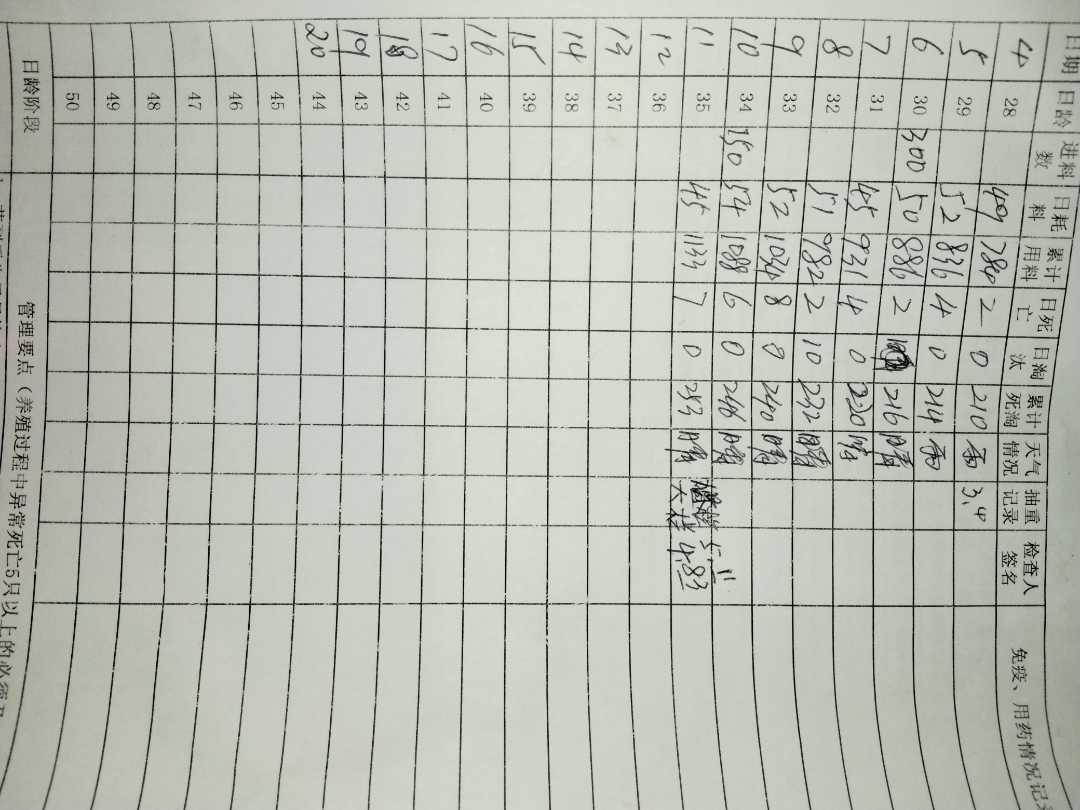 日期 日龄 进料数 日耗料 累计用料 日死亡 日淘汰 累计死淘 天气情况 抽重记录 检查人签名 免疫、用药情况记录
4 28 49 784 2 0 210 雨 3.4
5 29 52 836 4 0 214 雨
6 30 300 50 886 2 216 晴
7 31 45 931 4 0 220 晴
8 32 51 982 2 10 232 晴
9 33 52 1034 8 0 240 晴
10 34 150 54 1088 6 0 246 晴 5.11
11 35 45 1133 7 0 253 晴 大栋 4.83
12 36
13 37
14 38
15 39
16 40
17 41
18 42
19 43
20 44
45
46
47
48
49
50
日龄阶段 管理要点（养殖过程中异常死亡5只以上的必须及